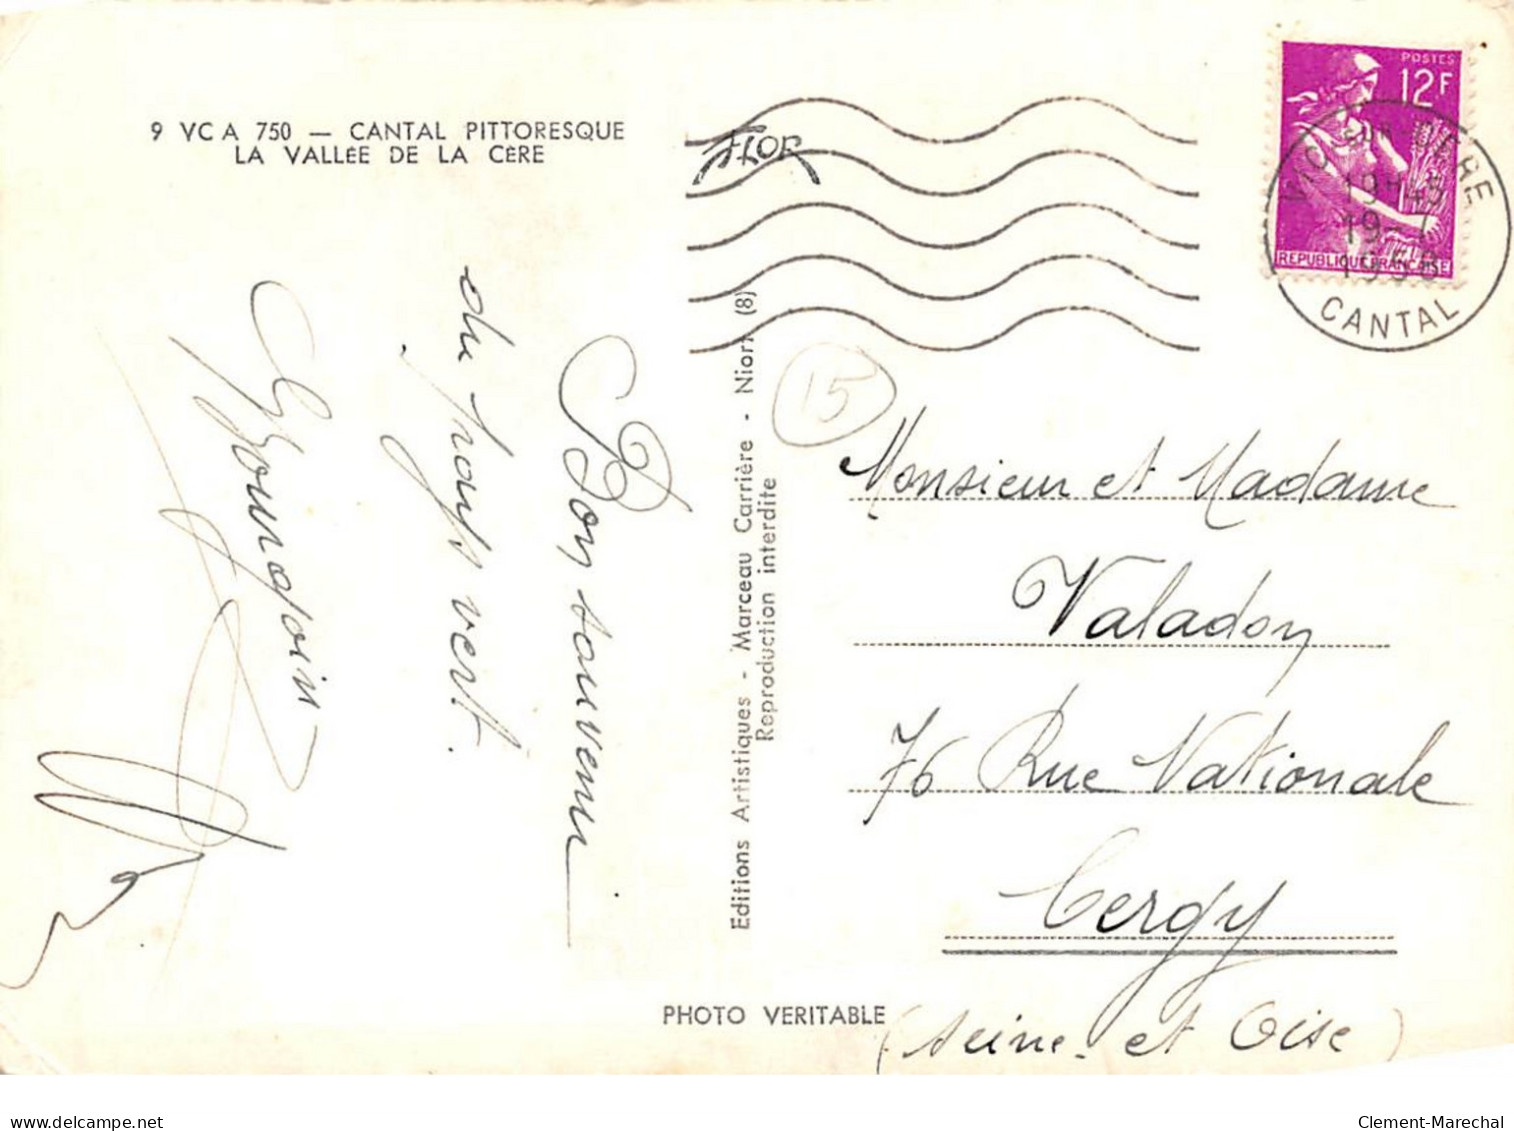 9 VC A 750 — CANTAL PITTORESQUE
LA VALLÉE DE LA CÈRE
Bon souvenir
du pays vert.
Bourgoin
Editions Artistiques - Marceau Carrière - Niort (8)
Reproduction interdite
PHOTO VERITABLE
POSTES
12F
REPUBLIQUE FRANÇAISE
VIC SUR CERE
19H45
19-7
CANTAL
15
Monsieur et Madame
Valadon
76 Rue Nationale
Cergy
(Seine et Oise)
Clement-Marechal